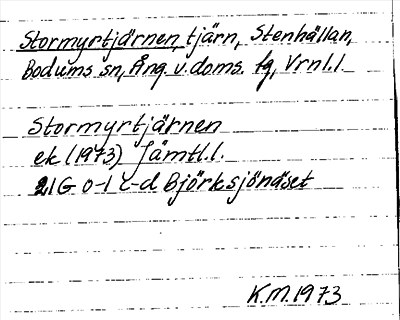 Stormyrtjärnen, tjärn, Stenhällan,
Bodums sn, Ång. v. doms. fg, Vrnl.l.
Stormyrtjärnen
ek (1973) Jämtl.l.
21G 0-1 c-d Björksjönäset
K.M.1973